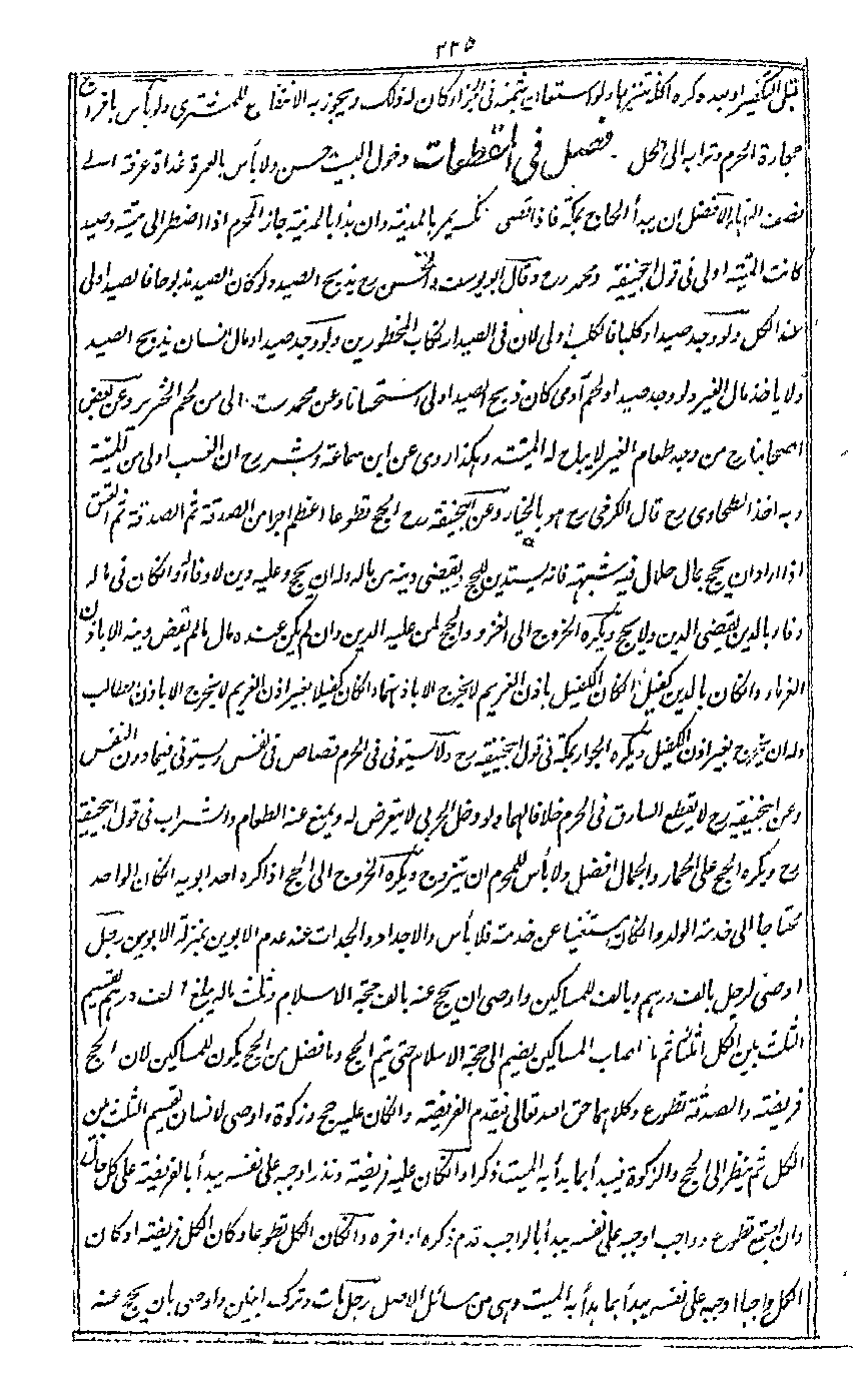 ٢٢٥
قبل التكفير او بعده كره اكله تنزيها ولو استعان بثمنه فى الجزاء كان له ذلك ويجوز به الانتفاع للمشترى ولا بأس باخراج
حجارة الحرم وترابه الى الحل فصل فى المقطعات دخول البيت حسن ولا بأس بالعمرة غداة عرفة الى
نصف النهار الافضل ان يبدأ الحاج بمكة فاذا قضى نسكه يمر بالمدينة وان بدأ بالمدينة جاز المحرم اذا اضطر الى ميتة وصيد
كانت الميتة اولى فى قول ابيحنيفة ومحمد رح وقال ابو يوسف والحسن رح يذبح الصيد ولو كان الصيد مذبوحا فالصيد اولى
عند الكل ولو وجد صيدا وكلبا فالكلب اولى لان فى الصيد ارتكاب المحظورين ولو وجد صيدا ومال انسان يذبح الصيد
ولا ياخذ مال الغير ولو وجد صيدا ولحم آدمى كان ذبح الصيد اولى استحسانا وعن محمد رح الصيد اولى من لحم الخنزير وعن بعض
اصحابنا رح من وجد طعام الغير لا يباح له الميتة وهكذا روى عن ابن سماعة وبشر رح ان الغصب اولى من الميتة
وبه اخذ الطحاوى رح قال الكرخى رح هو بالخيار وعن ابيحنيفة رح الحج تطوعا اعظم اجرا من الصدقة ثم الصدقة ثم العتق
اذا اراد ان يحج بمال حلال فيه شبهة فانه يستدين للحج ويقضى دينه من ماله وله ان يحج وعليه دين لا وفاء له وانكان فى ماله
وفاء بالدين يقضى الدين ولا يحج ويكره الخروج الى الغزو والحج لمن عليه الدين وان لم يكن عنده مال مالم يقض دينه الا باذن
الغرماء وانكان بالدين كفيل انكان الكفيل باذن الغريم لا يخرج الا باذنهما وانكان كفيلا بغير اذن الغريم لا يخرج الا باذن الطالب
وله ان يخرج بغير اذن الكفيل ويكره الجوار بمكة فى قول ابيحنيفة رح ولا يستوفى فى الحرم قصاص فى نفس ويستوفى فيما دون النفس
وعن ابيحنيفة رح لا يقطع السارق فى الحرم خلافا لهما ولو دخل الحربى لا يتعرض له ويمنع عنه الطعام والشراب فى قول ابيحنيفة
رح ويكره الحج على الحمار والجمال افضل ولا بأس للمحرم ان يتزوج ويكره الخروج الى الحج اذا كره احد ابويه انكان الوالد
محتاجا الى خدمة الولد وانكان مستغنيا عن خدمته فلا بأس والاجداد والجدات عند عدم الابوين بمنزلة الابوين رجل
اوصى لرجل بالف درهم وبالف للمساكين واوصى ان يحج عنه بالف حجة الاسلام وثلث ماله يبلغ الف درهم يقسم
الثلث بين الكل اثلاثا ثم ما اصاب المساكين يضم الى حجة الاسلام حتى يتم الحج وما فضل من الحج يكون للمساكين لان الحج
فريضة والصدقة تطوع وكلاهما حق الله تعالى فيقدم الفريضة وانكان عليه حج وزكوة واوصى لانسان يقسم الثلث بين
الكل ثم ينظر الى الحج والزكوة فيبدأ بما بدأ به الميت ذكرا وانكان عليه فريضة ونذر اوجبه على نفسه يبدأ بالفريضة على كل حال
وان اجتمع تطوع وواجب اوجبه على نفسه يبدأ بالواجب قدم ذكره او اخره وانكان الكل تطوعا وكان الكل فريضة او كان
الكل واجبا اوجبه على نفسه يبدأ بما بدأ به الميت وهى من مسائل الاصل رجل مات وترك ابنين واوصى بان يحج عنه